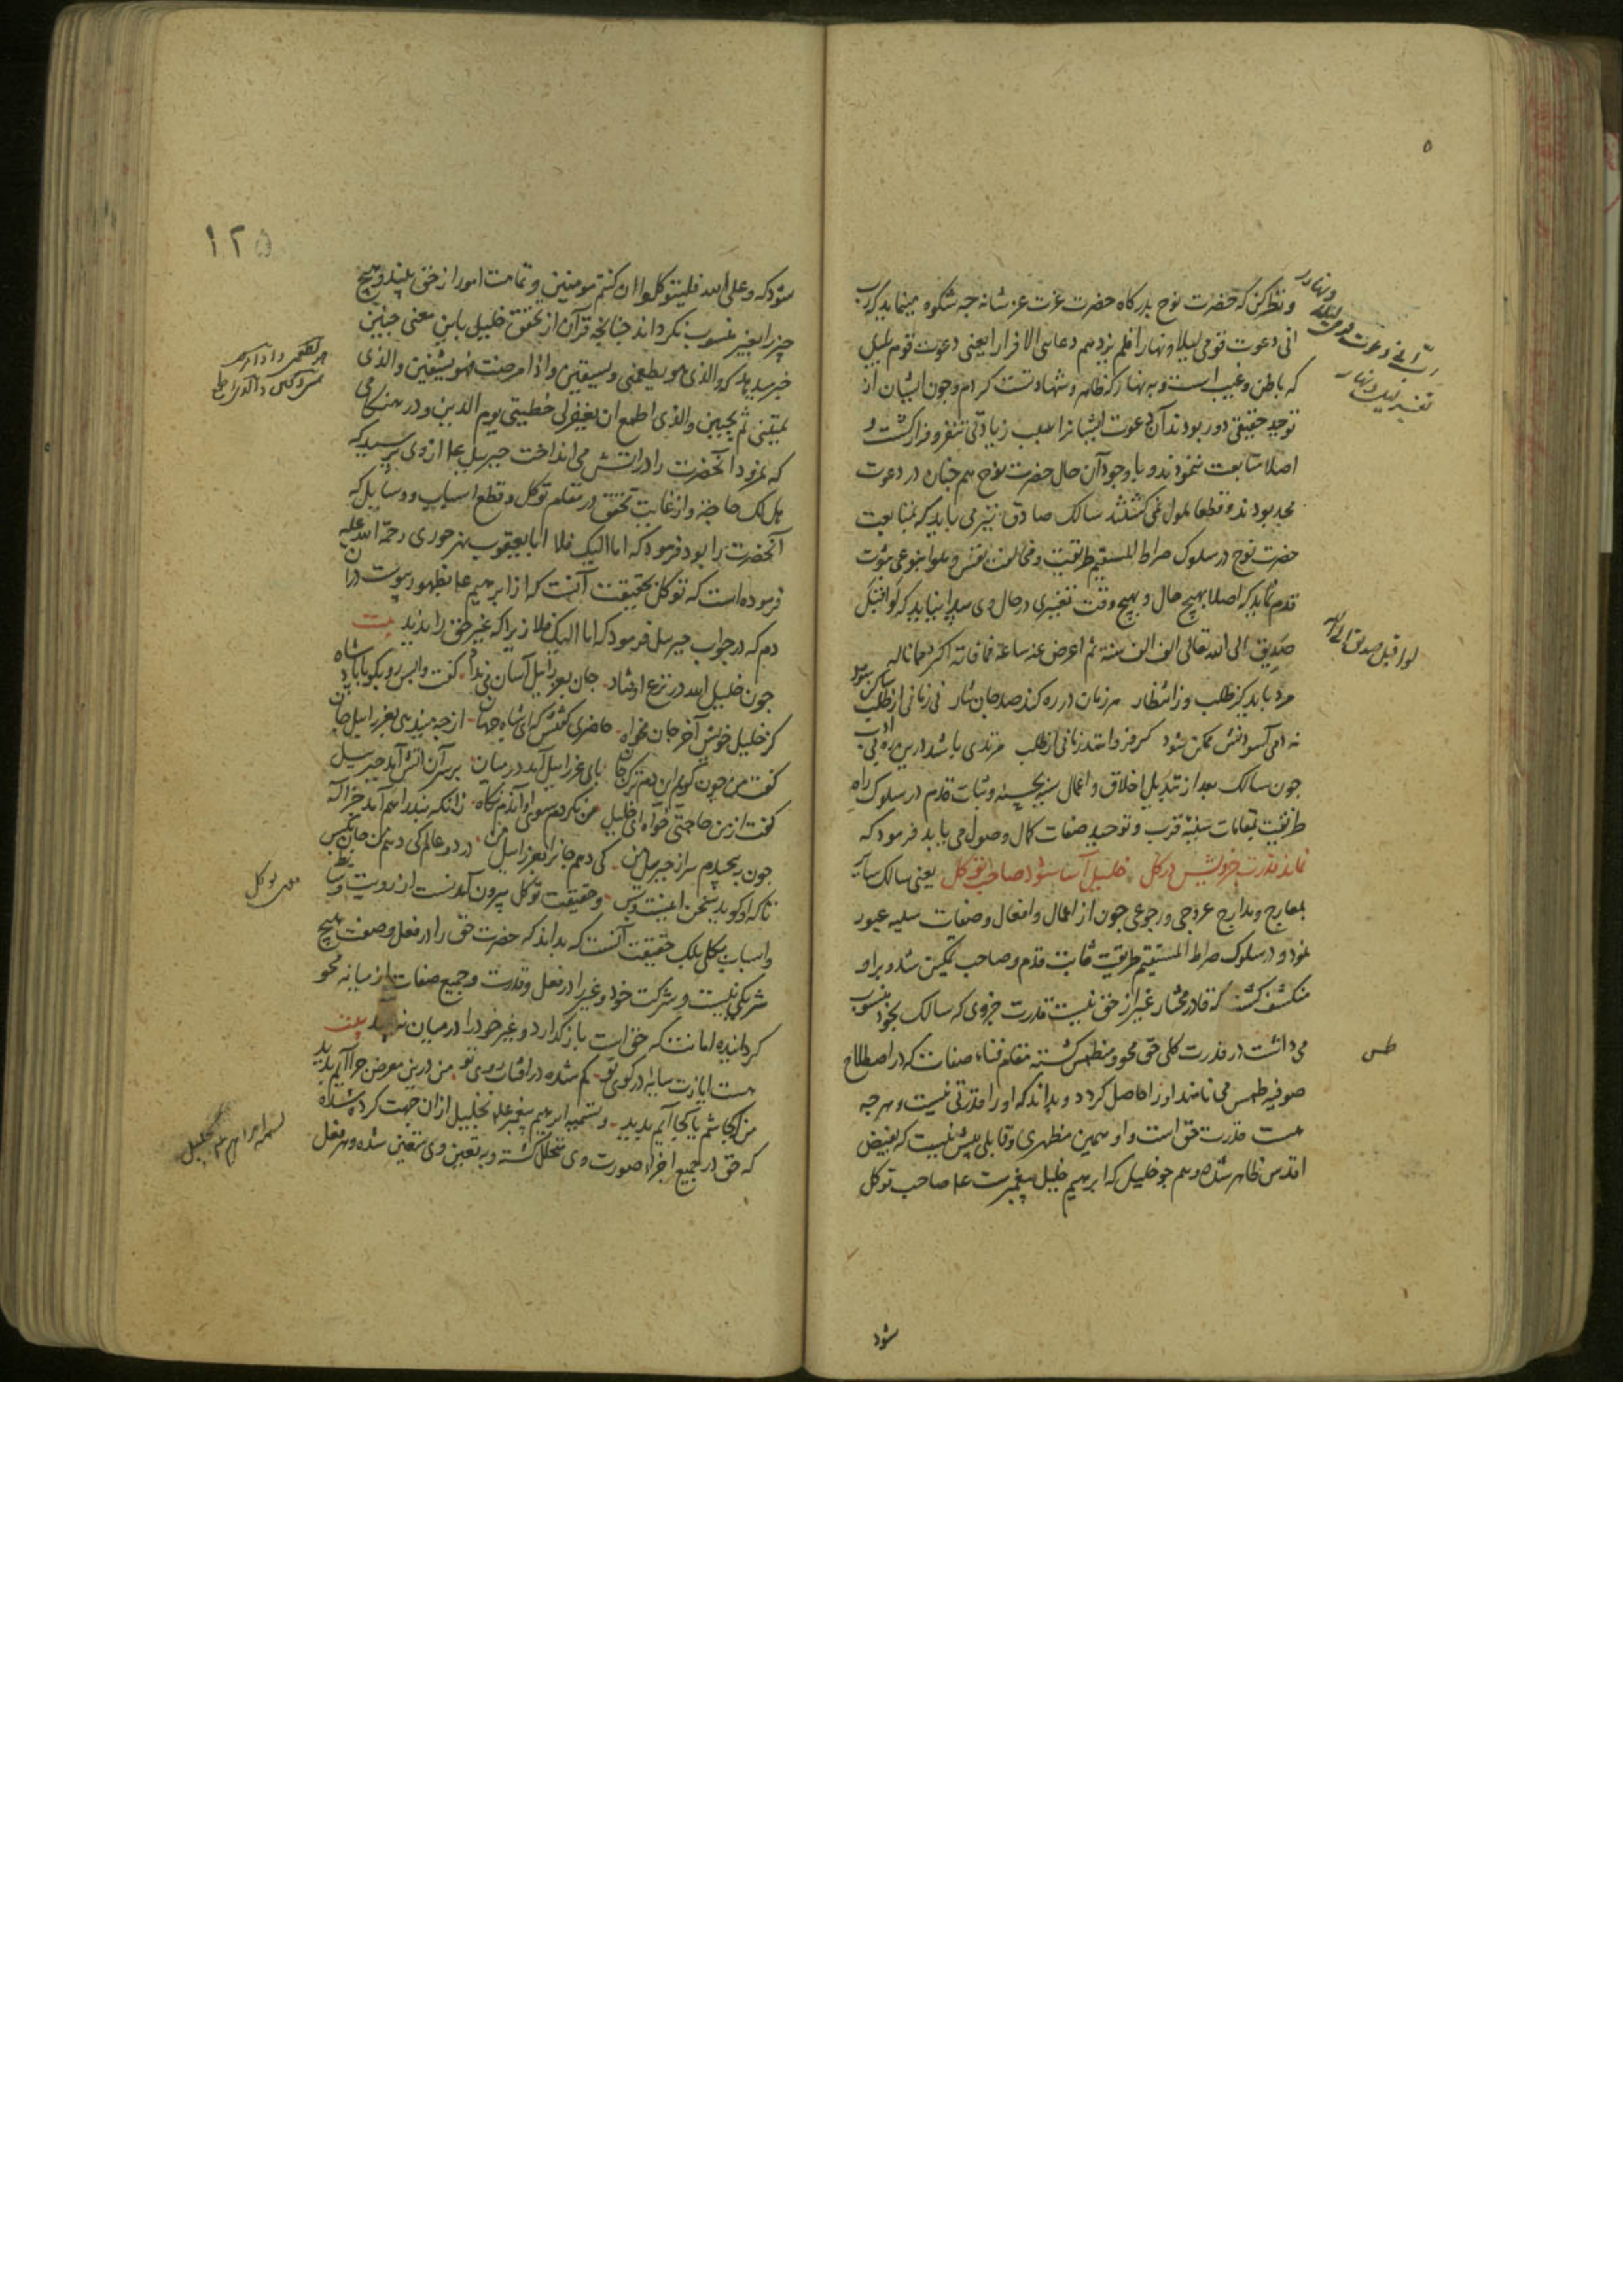 و نظر کن که حضرت نوح بدرکاه حضرت عزت عز شانه جه شکوه مینماید که رب
انی دعوت قومی لیلا و نهارا فلم یزدهم دعایی الا فرارا یعنی دعوت قوم بلیل
که باطن و غیب است و به نهار که ظاهر و شهادتست کردم و جون ایشان از
توحید حقیقی دور بودند آن دعوت ایشانرا سبب زیادتی تنفر و فرار کشت و
اصلا متابعت ننمودند و با وجود آن حال حضرت نوح هم جنان در دعوت
مجد بودند و قطعا ملول نمی کشتند سالک صادق نیز می باید که بمتابعت
حضرت نوح در سلوک صراط المستقیم طریقت و مخالفت نفس و هوا بنوعی ثبوت
قدم نماید که اصلا بهیچ حال و بهیچ وقت تغییری در حال وی پیدا نیاید که لو اقبل
صدیق الی الله تعالی الف الف سنة ثم اعرض عنه ساعة فما فاته اکثر مما ناله
مرد باید کز طلب و ز انتظار هر زمان در ره کند صد جان نثار نی زمانی از طلب ساکن شود
نه دمی آسودنش ممکن شود کر فرو استد زمانی از طلب مرتدی باشد درین ره بی ادب
جون سالک بعد از تبدیل اخلاق و اعمال سیه بحسنه و ثبات قدم در سلوک راه
طریقت بمقامات سنیه قرب و توحید صفات کمال وصول می یابد فرمود که
نماند قدرت جزویش در کل خلیل آسا شود صاحب توکل یعنی سالک سایر
بمعارج و مدارج عروجی و رجوعی جون از اعمال و افعال و صفات سیه عبور
نمود و در سلوک صراط المستقیم طریقت ثابت قدم و صاحب تمکین شد و براو
منکشف کشت که قادر مختار غیر از حق نیست قدرت جزوی که سالک بخود منسوب
می داشت در قدرت کلی حق محو و منطمس کشته مقام فناء صفات که در اصطلاح
صوفیه طمس می نامند او را حاصل کردد و بداند که او را قدرتی نیست و هر جه
هست قدرت حق است و او همین مظهری و قابلی بیش نیست که بفیض
اقدس ظاهر شده و هم جو خلیل که ابرهیم خلیل پیغمبرست عم صاحب توکل
شود
لو اقبل صدیق الی الله
طمس
۱۲۵
شود که و علی الله فلیتوکلوا ان کنتم مومنین و تمامت امور از حق بیند و هیچ
چیز را بغیر منسوب نکرداند جنانچه قرآن از تحقق خلیل باین معنی جنین
خبر میدهد که والذی هو یطعمنی و یسقین و اذا مرضت فهو یشفین والذی
یمیتنی ثم یحیین والذی اطمع ان یغفر لی خطیئتی یوم الدین و در هنکامی
که نمرود آنحضرت را در آتش می انداخت جبرییل عم از وی پرسید که
هل لک حاجة و از غایت تحقق در مقام توکل و قطع اسباب و وسایل که
آنحضرت را بود فرمود که اما الیک فلا ابا یعقوب نهرجوری رحمة الله علیه
فرموده است که توکل بحقیقت آنست که از ابرهیم عم بظهور پیوست در آن
دم که در جواب جبرییل فرمود که اما الیک فلا زیرا که غیر حق را ندید بیت
جون خلیل الله در نزع اوفتاد جان بعزراییل آسان می نداد کفت واپس رو بکو با پادشاه
کز خلیل خویش آخر جان مخواه حاضری کفتش که ای شاه جهان از جه میندهی بعزراییل جان
کفت من جون کویم این دم ترک جان پای عزراییل آمد در میان بر سر آتش آمد جبرییل
کفت از من حاجتی خواه ای خلیل من نکردم سوی او آندم نکاه زانکه بند راهم آمد جز اله
جون بپیچیدم سر از جبرییل من کی دهم جانرا بعزراییل من در دو عالم کی دهم من جان بکس
تا که او کوید سخن اینست و بس و حقیقت توکل بیرون آمدنست از رویت وسایط
و اسباب بکلی بلک حقیقت آنست که بداند که حضرت حق را در فعل و صفت هیچ
شریکی نیست و شرکت خود و غیر را در فعل و قدرت و جمیع صفات از میانه محو
کردانیده امانت که حق است باز کذارد و غیر خود را در میان نبیند بیت
هست ایازت سایه در کوی تو کم شده در آفتاب روی تو من درین معرض جرا آیم پدید
من کجا باشم یا کجا آیم پدید و تسمیه ابرهیم پیغمبر عم بخلیل از آن جهت کرده شده
که حق در جمیع اجزاء صورت وی متخلل کشته و به تعین وی متعین شده و بهر فعل
معنی توکل
تسمیه ابراهیم عم بخلیل